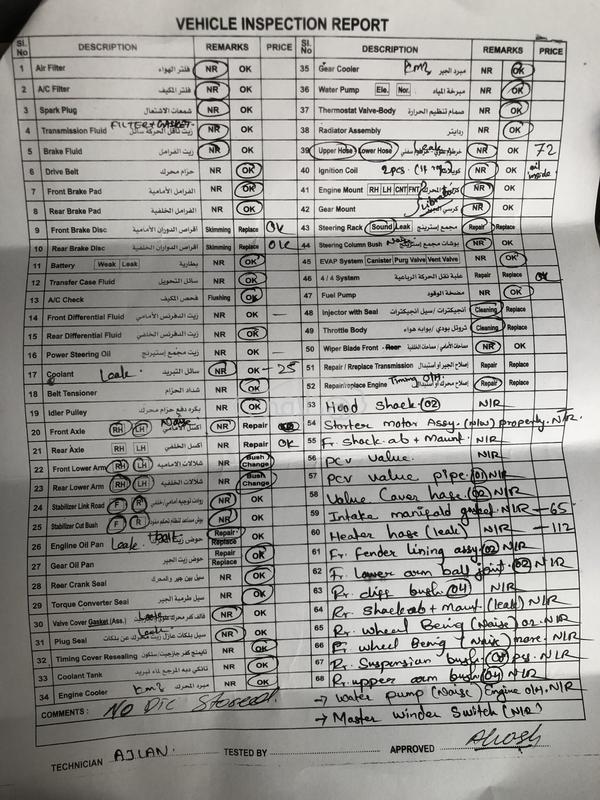 VEHICLE INSPECTION REPORT
Sl. No DESCRIPTION REMARKS PRICE
1 Air Filter فلتر الهواء NR OK
2 A/C Filter فلتر المكيف NR OK
3 Spark Plug شمعات الاشتعال NR OK
FILTER + GASKET
4 Transmission Fluid NR OK
5 Brake Fluid زيت الفرامل NR OK
6 Drive Belt حزام محرك NR OK
7 Front Brake Pad الفرامل الأمامية NR OK
8 Rear Brake Pad الفرامل الخلفية NR OK
9 Front Brake Disc أقراص الدوران الأمامية Skimming Replace OK
10 Rear Brake Disc أقراص الدوران الخلفية Skimming Replace OK
11 Battery Weak Leak بطارية NR OK
12 Transfer Case Fluid سائل التحويل NR OK
13 A/C Check فحص المكيف Flushing OK
14 Front Differential Fluid زيت الدفرنس الأمامي NR OK —
15 Rear Differential Fluid زيت الدفرنس الخلفي NR OK
16 Power Steering Oil NR OK —
17 Coolant Leak سائل التبريد NR OK - 25
18 Belt Tensioner شداد الحزام NR OK
19 Idler Pulley NR OK
20 Front Axle RH LH Noise NR Repair
21 Rear Axle RH LH اكسل الخلفي NR Repair OK
22 Front Lower Arm RH LH NR Bush Change
23 Rear Lower Arm RH LH NR Bush Change
24 Stabilizer Link Road F R NR OK
25 Stabilizer Cut Bush F R NR OK
26 Engline Oil Pan Leak + bolt Repair Replace OK
27 Gear Oil Pan حوض زيت الجير Repair Replace OK
28 Rear Crank Seal NR OK
29 Torque Converter Seal NR OK
30 Valve Cover Gasket (Ass.) Leak NR OK
31 Plug Seal Leak NR OK
32 Timing Cover Resealing NR OK
33 Coolant Tank NR OK
34 Engine Cooler مبرد المحرك NR OK
COMMENTS : NO DTC Stored.
Sl. No DESCRIPTION REMARKS PRICE
35 Gear Cooler مبرد الجير NR OK
36 Water Pump Ele. Nor. مبرخة المياه NR OK
37 Thermostat Valve-Body صمام تنظيم الحرارة NR OK
38 Radiator Assembly رديايتر NR OK
39 Upper Hose Lower Hose Leak NR OK 72
40 Ignition Coil 2pcs NR OK oil inside
41 Engine Mount RH LH CNT FNT NR OK
42 Gear Mount Vibration NR OK
43 Steering Rack Sound Leak Repair Replace
44 Steering Column Bush Noise NR OK
45 EVAP System Canister Purg Valve Vent Valve NR OK
46 4 / 4 System Repair Replace OK
47 Fuel Pump مضخة الوقود NR OK
48 Injector with Seal Cleaning Replace
49 Throttle Body Cleaning Replace
50 Wiper Blade Front - Rear NR OK
51 Repair / Replace Transmission Repair Replace
52 Repair/replace Engine Timing O/H Repair Replace
53 Hood Shack (02) N/R
54 Starter motor Assy. (N/W) property. N/R
55 Fr. shock ab + Mount N/R
56 PCV Valve. N/R
57 PCV Value pipe. (01) N/R
58 Value Caver hase. (02) N/R
59 Intake manifold gasket N/R — 65
60 Heater hase (leak) N/R — 112
61 Fr. fender lining assy. (02) N/R
62 Fr. Lower arm ball joint. (02) N/R
63 Rr. diff bush. (04) N/R
64 Rr. Shack ab + Maunt. (leak) N/R
65 Rr. wheel Being (Noise) 02. N/R
66 Fr. wheel Being (Noise) more. N/R
67 Rr. Suspension bush. pcs. N/R
68 Rr. upper arm bush (04) N/R
→ Water pump (Noise) Engine O/H. N/R
→ Master winder Switch (N/R)
TECHNICIAN AJLAN. TESTED BY APPROVED